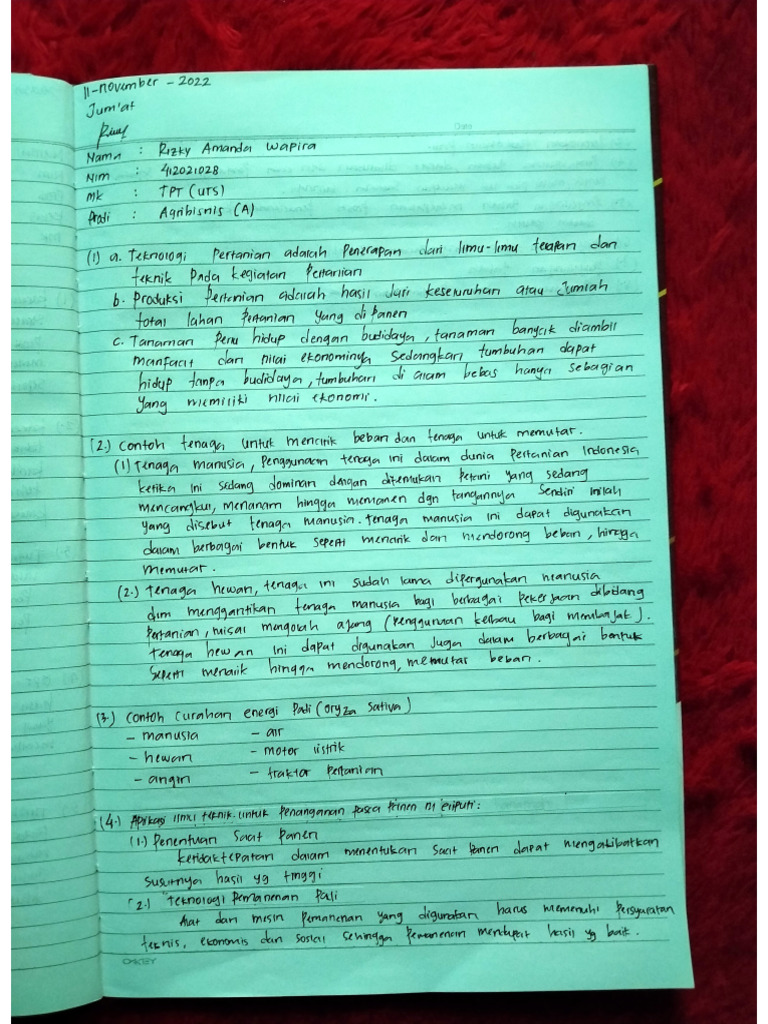 11-november - 2022
Jum'at
Nama : Rizky Amanda Wapira
Nim : 412021028
Mk : TPT (UTS)
Prodi : Agribisnis (A)
(1) a. Teknologi Pertanian adalah Penerapan dari Ilmu-Ilmu terapan dan
teknik Pada kegiatan Pertanian
b. Produksi Pertanian adalah hasil dari keseluruhan atau Jumlah
total lahan Pertanian yang di Panen
c. Tanaman Perlu hidup dengan budidaya, tanaman banyak diambil
manfaat dan nilai ekonominya sedangkan tumbuhan dapat
hidup tanpa budidaya, tumbuhan di alam bebas hanya sebagian
yang memiliki nilai ekonomi.
(2.) Contoh tenaga untuk menarik beban dan tenaga untuk memutar.
(1) Tenaga manusia, Penggunaan tenaga ini dalam dunia Pertanian Indonesia
ketika ini sedang dominan dengan ditemukan Petani yang sedang
mencangkul, menanam hingga memanen dgn tangannya Sendiri inilah
yang disebut tenaga manusia. tenaga manusia ini dapat digunakan
dalam berbagai bentuk seperti menarik dan mendorong beban, hingga
memutar.
(2.) Tenaga hewan, tenaga ini sudah lama dipergunakan manusia
dlm menggantikan tenaga manusia bagi berbagai pekerjaan dibidang
Pertanian, misal mengolah ajang (Penggunaan kerbau bagi membajak).
tenaga hewan ini dapat digunakan juga dalam berbagai bentuk
seperti menarik hingga mendorong, memutar beban.
(3.) Contoh Curahan energi Padi (oryza Sativa)
- manusia - air
- hewan - motor listrik
- angin - traktor Pertanian
(4.) Aplikasi ilmu teknik untuk Penanganan Pasca Panen meliputi:
(1.) Penentuan Saat Panen
ketidaktepatan dalam menentukan Saat Panen dapat mengakibatkan
susutnya hasil yg tinggi
(2.) Teknologi Pemanenan Padi
Alat dan mesin Pemanenan yang digunakan harus memenuhi Persyaratan
teknis, ekonomis dan sosial sehingga Pemanenan mendapat hasil yg baik.